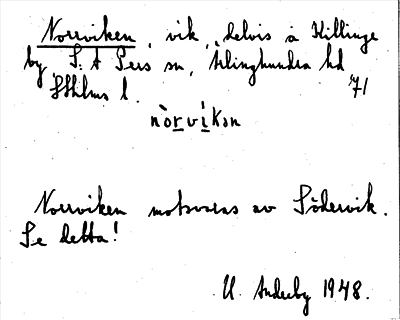 Norrviken, vik, delvis å Killinge
by, S:t Pers sn, Ärlinghundra hd
Sthlms l. 71
nòrvìkən
Norrviken motsvaras av Södervik.
Se detta!
U. Anderby 1948.